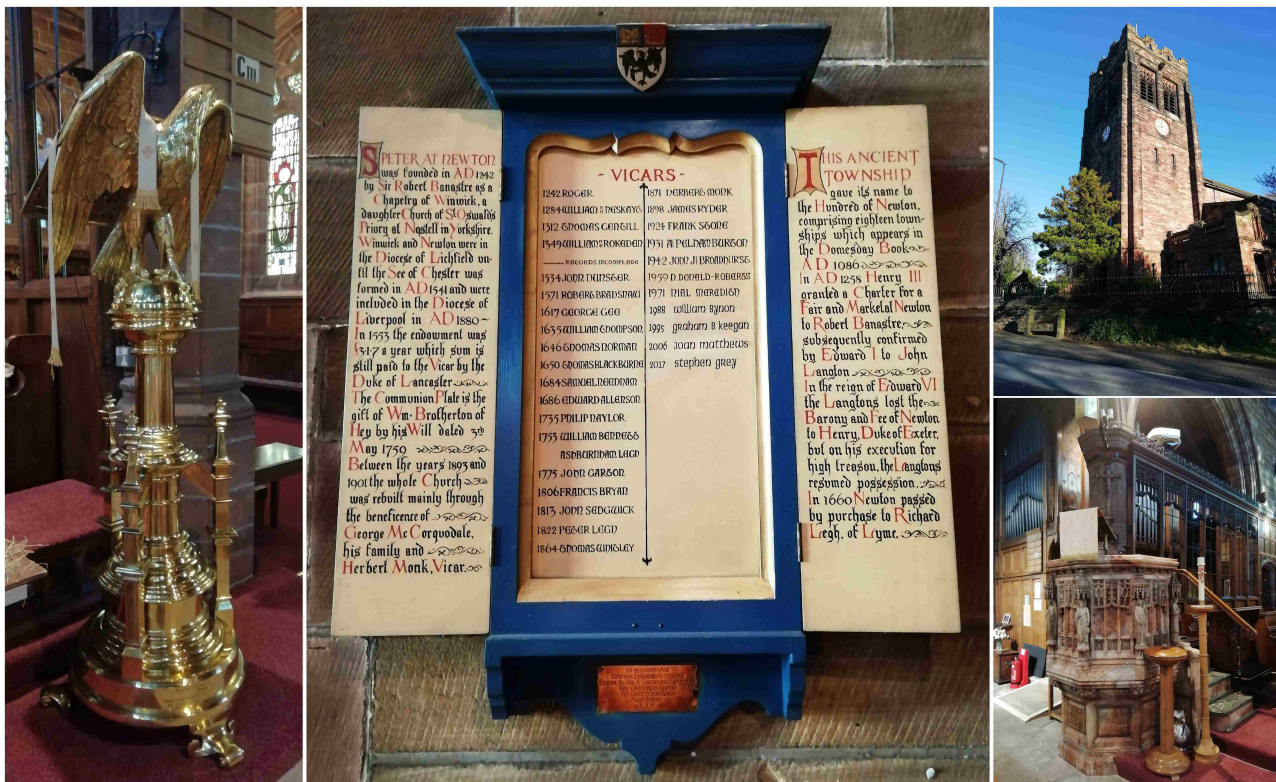 Cm
S PETER AT NEWTON
was founded in AD 1242
by Sir Robert Banastre as a
Chapelry of Winwick, a
daughter Church of St Oswalds
Priory at Nostell in Yorkshire.
Winwick and Newton were in
the Diocese of Lichfield un-
til the See of Chester was
formed in AD 1541 and were
included in the Diocese of
Liverpool in AD 1880~
In 1553 the endowment was
a year which sum is
still paid to the Vicar by the
Duke of Lancaster
The Communion Plate is the
gift of Wm. Brotherton of
Hey by his Will dated 3rd
May 1759
Between the years 1893 and
1901 the whole Church
was rebuilt mainly through
the beneficence of
George Mc Corquodale,
his family and
Herbert Monk, Vicar.
- VICARS -
1242 ROGER
1284 WILLIAM
1312 THOMAS GENTILL
1349 WILLIAM DE ROKEDEN
RECORDS INCOMPLETE
1534 JOHN DUNSTER
1571 ROBERT BRADSHAW
1617 GEORGE GEE
1635 WILLIAM THOMPSON
1646 THOMAS NORMAN
1650 THOMAS BLACKBURNE
1684 SAMUEL NEEDHAM
1686 EDWARD ALLENSON
1735 PHILIP NAYLOR
1753 WILLIAM BENNETT
ASHBURNHAM LEGH
1775 JOHN GARTON
1806 FRANCIS BRYAN
1813 JOHN SEDGWICK
1822 PETER LEGH
1864 THOMAS WHITLEY
1871 HERBERT MONK
1898 JAMES RYDER
1924 FRANK STONE
1931 A PELHAM BURTON
1942 JOHN J BROADHURST
1959 D. DONALD-ROBERTS
1971 NIAL MEREDITH
1988 william bynon
1995 graham b keegan
2006 joan matthews
2017 stephen grey
THIS ANCIENT
TOWNSHIP
gave its name to
the Hundred of Newton,
comprising eighteen town-
ships which appears in
the Domesday Book
AD 1086
In AD 1258 Henry III
granted a Charter for a
Fair and Market at Newton
to Robert Banastre
subsequently confirmed
by Edward I to John
Langton
In the reign of Edward VI
the Langtons lost the
Barony and Fee of Newton
to Henry, Duke of Exeter,
but on his execution for
high treason, the Langtons
resumed possession.
In 1660 Newton passed
by purchase to Richard
Legh, of Lyme.